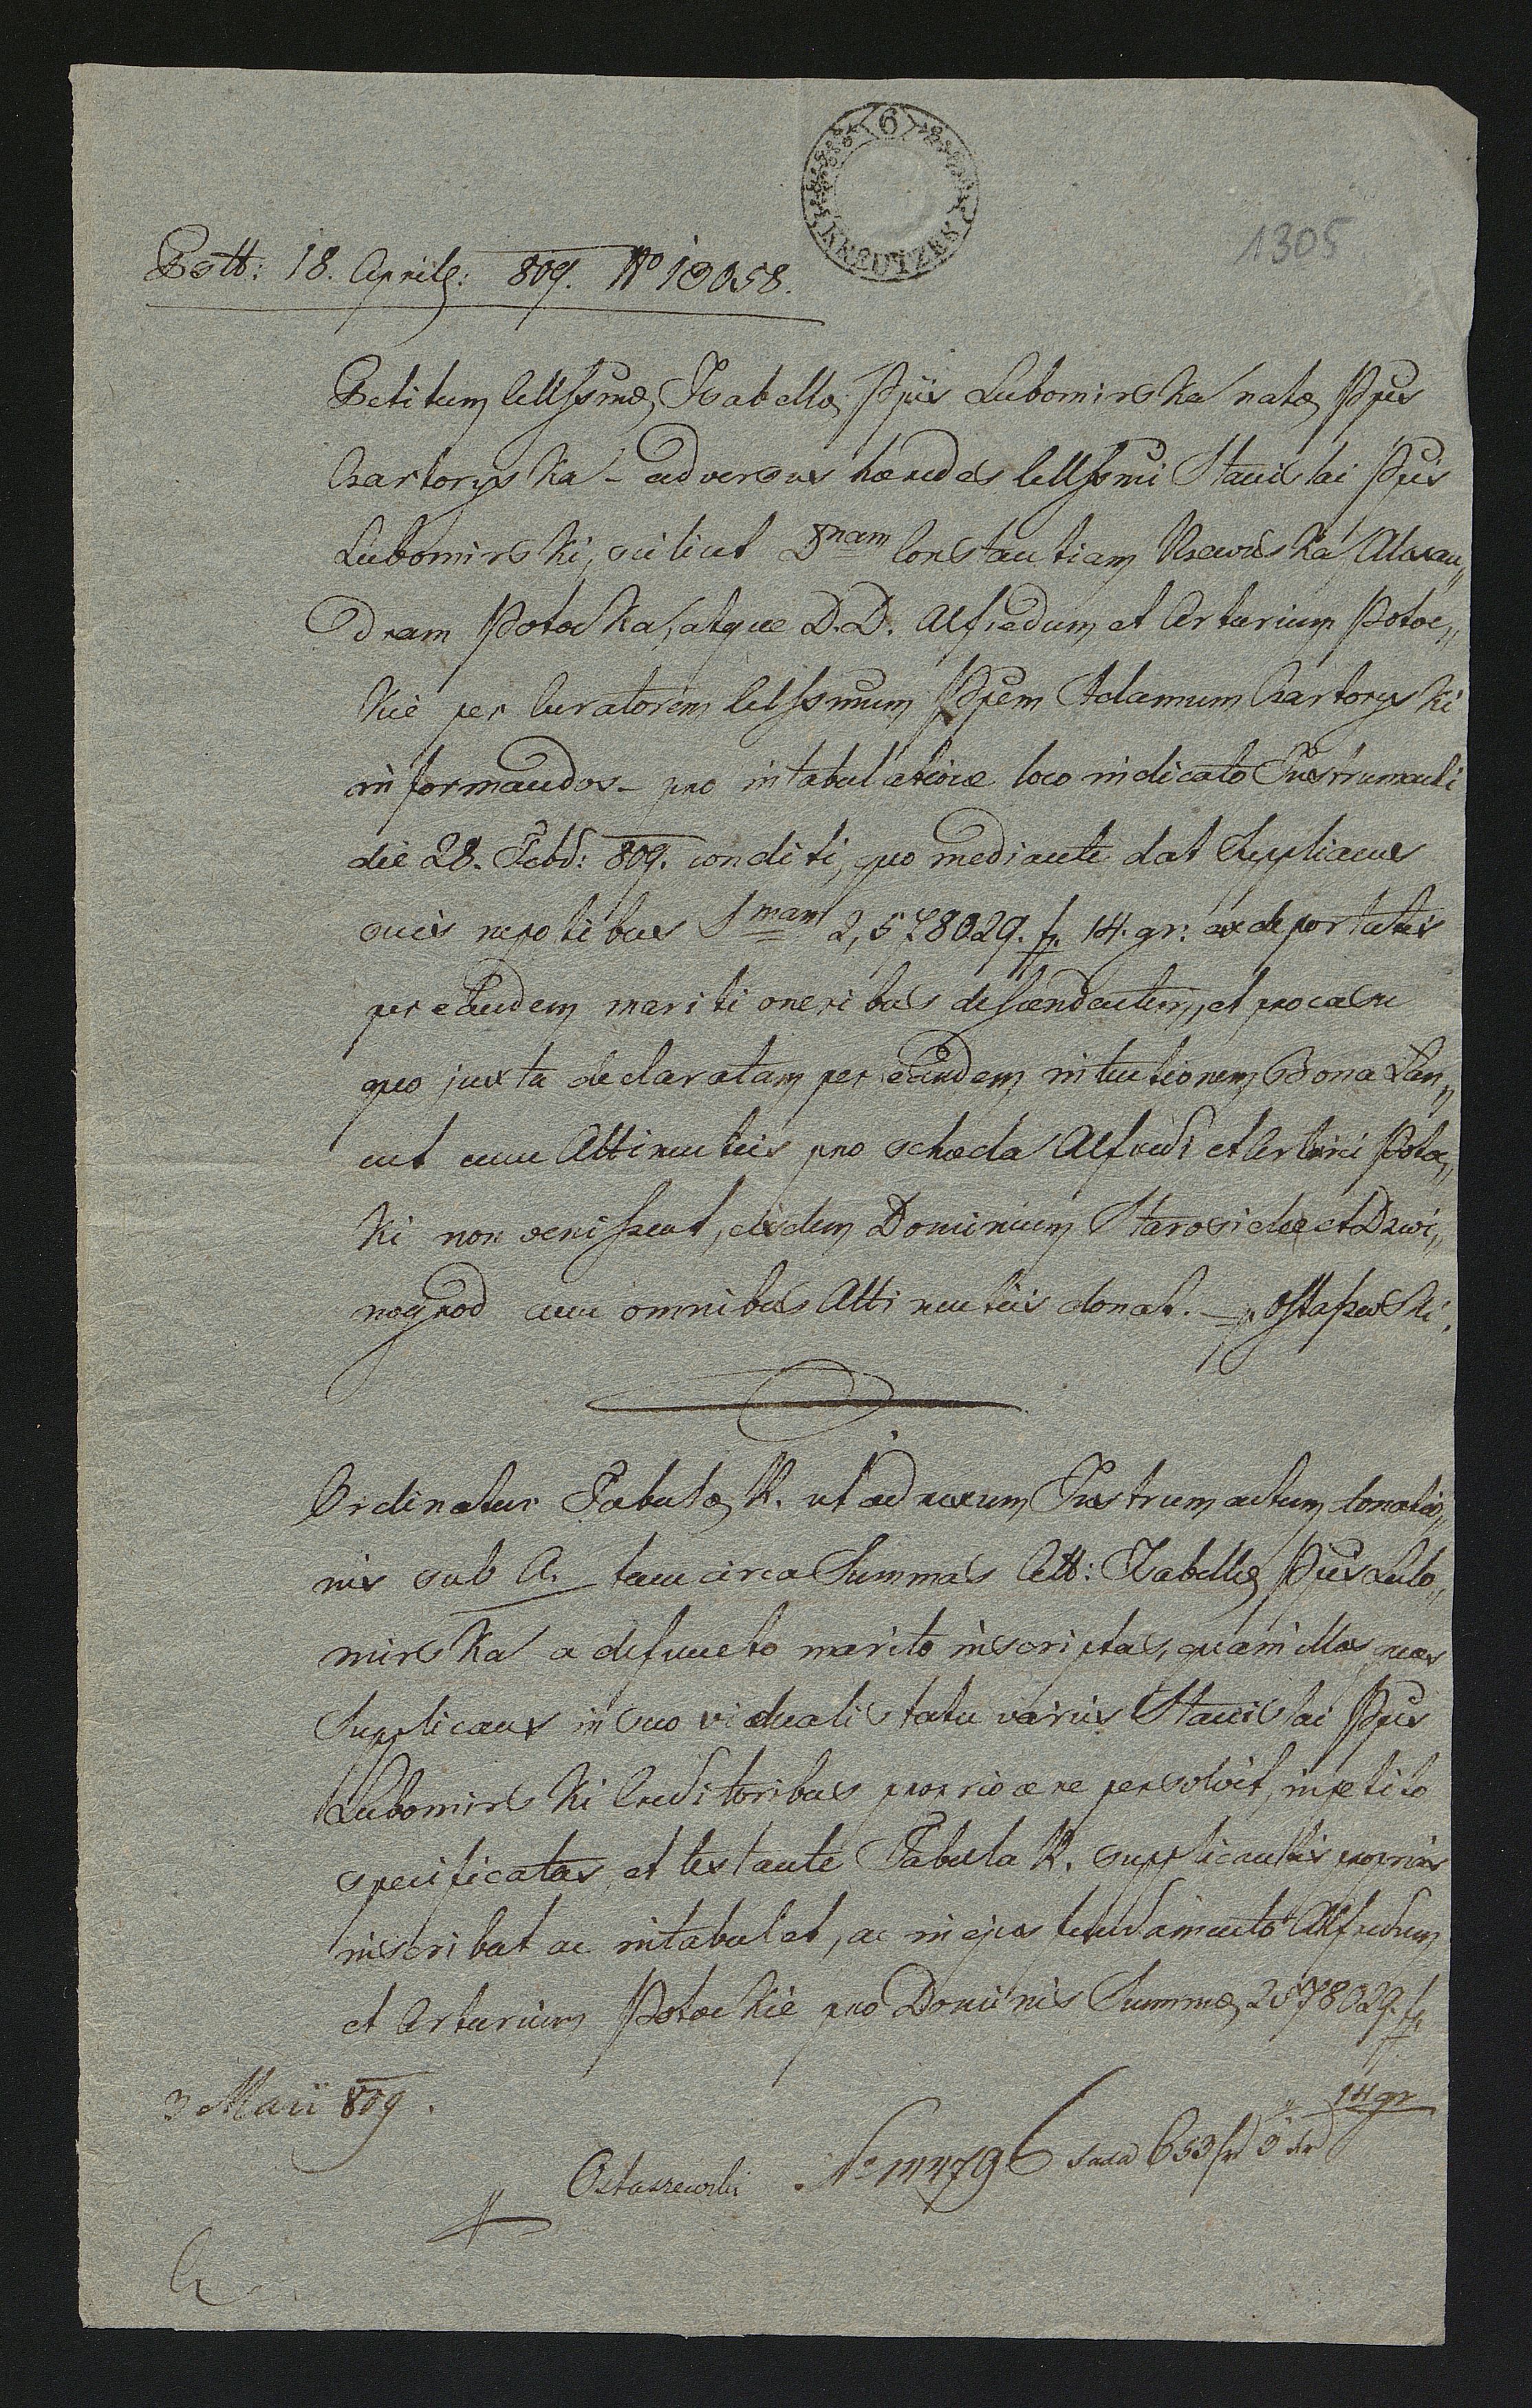 6
KREUTZER
1305
Pstt: 18. Aprilis: 809. No 13058.
Petitum Cellssmæ Isabellæ Ppis Lubomirska natæ Ppis
Czartoryska – adversus hæredes Cellssmi Stanislai Ppis
Lubomirski, scilicet Dnam Constantiam Rzewuska, Alexan„
dram Potocka, atque D.D. Alfredum et Arturium Potoc„
kie per Curatorem Celssmum Ppem Adamum Czartoryski
informandos – pro intabulatione loco indicato Instrumenti
die 28. Febr: 809. conditi, quo mediante dat Supplicans
suis nepotibus Smam 2,578029. f. 14. gr: ex deportatis
per eandem mariti oneribus descendentem, et pro casu
quo juxta declaratam per eandem intentionem Bona Łan„
cut cum Attinentiis pro scheda Alfredi et Arturi Potoc„
ki non venissent, eisdem Dominium Starosiele et Dzwi„
nogrod cum omnibus Attinentiis donat. – Ostaszewski.
Ordinatur Tabulæ R. ut adnexum Instrumentum donatio„
nis sub A. tam circa Summas Cell: Isabellæ Ppis Lubo„
mirska a defuncto marito inscriptas, quam illas quas
Supplicans in suo viduali statu variis Stanislai Ppis
Lubomirski Creditoribus proprio ære persolvit, in petito
specificatas, et testante Tabula R. supplicantis proprias
inscribat ac intabulet, ac in ejus fundamento Alfredum
et Arturium Potockie pro Dominis Summæ 2578029. f.
14 gr
3 Maii 809.
Ostaszewski No 14796 taxa 653 fr 3 xr